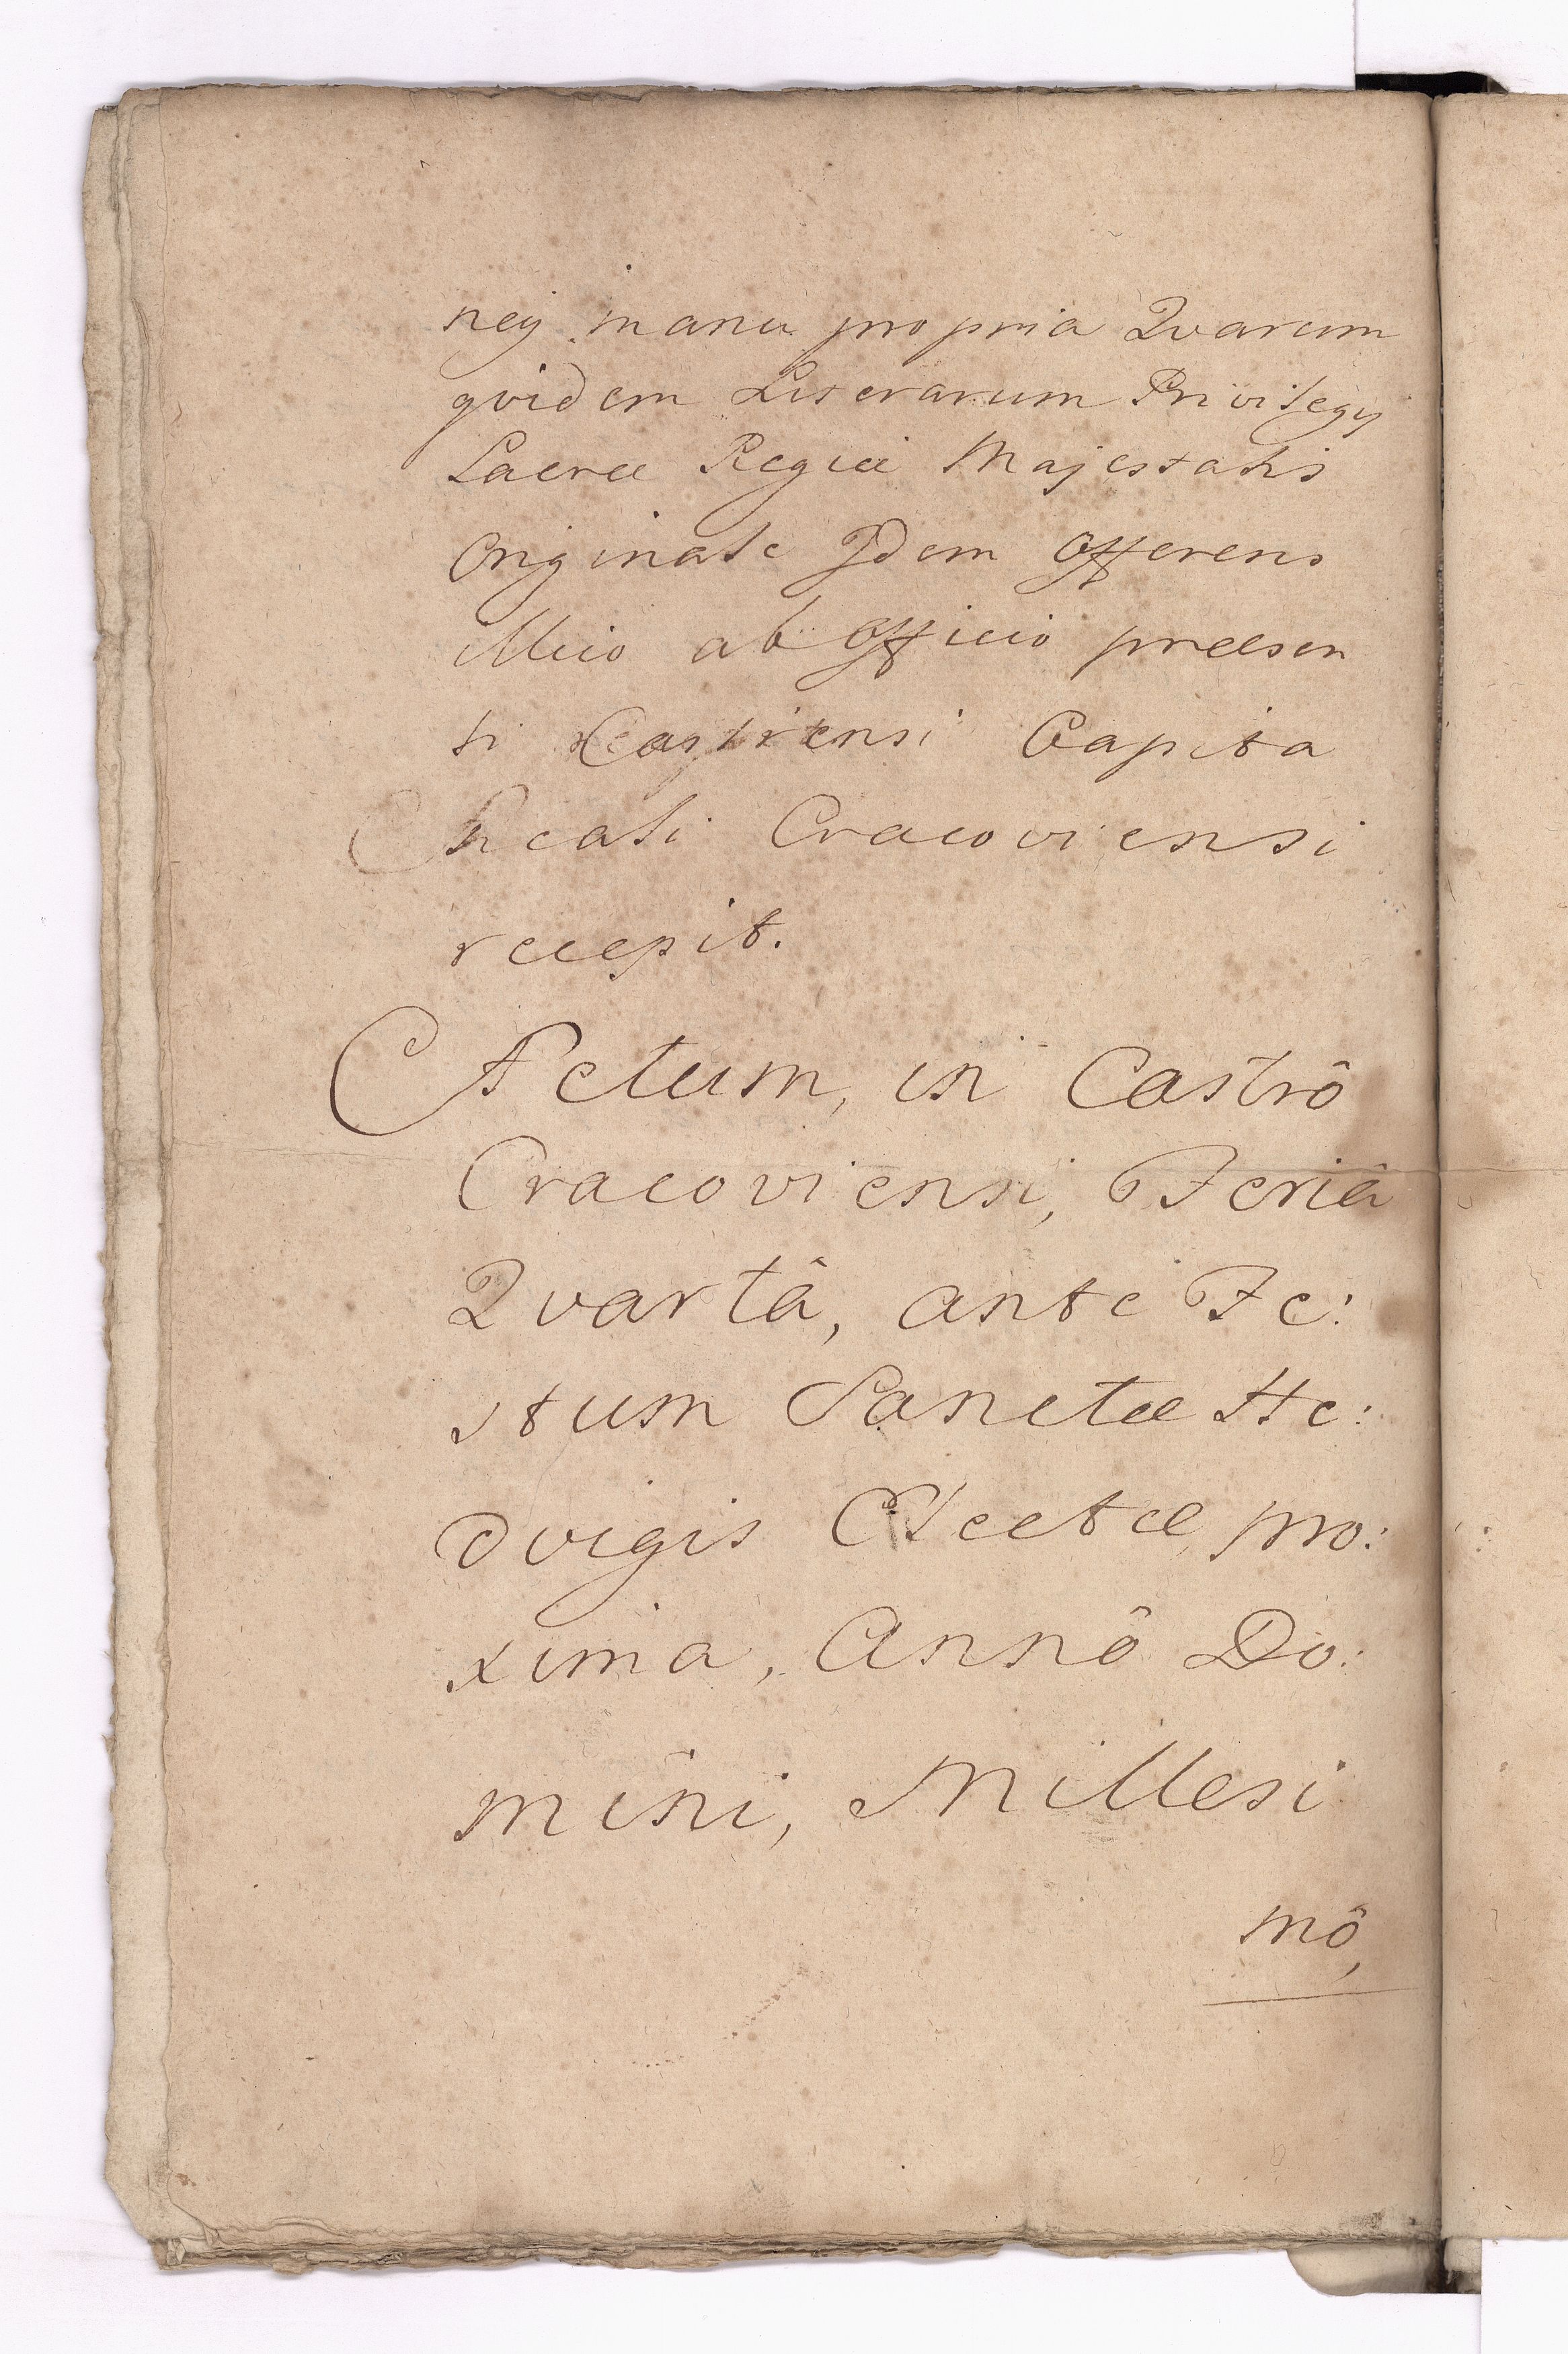 neÿ manu propria Qvarum
qvidem Literarum Privilegÿ
Sacræ Regiæ Majestatis
Originale Idem Offerens
illico ab Officio præsen
ti Castrensi Capita
neali Cracoviensi
recepit.
Actum, in Castrô
Cracoviensi, Feriâ
Qvartâ, ante Fe:
stum Sanctæ He:
dvigis Electæ pro:
xima, Annô Do:
mini, Millesi
mô,